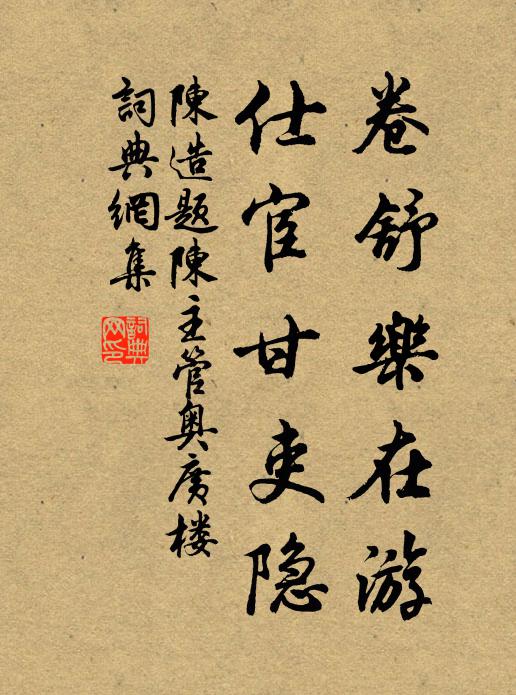 卷舒樂在游
仕宦甘吏隐
陳造題陳主管奥廣楼
詞典網集
詞典
网印